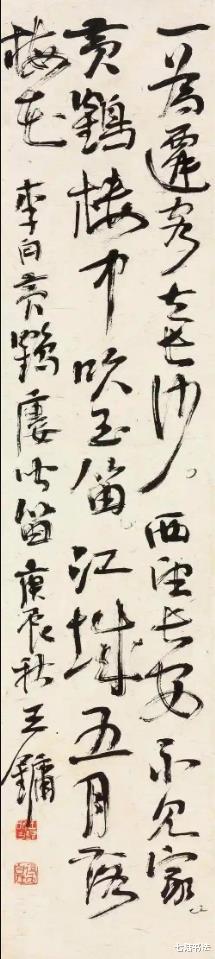 一为迁客去长沙西望长安不见家
黄鹤楼中吹玉笛江城五月落
梅花
李白黄鹤楼吹笛庚辰秋王镛
七活书法